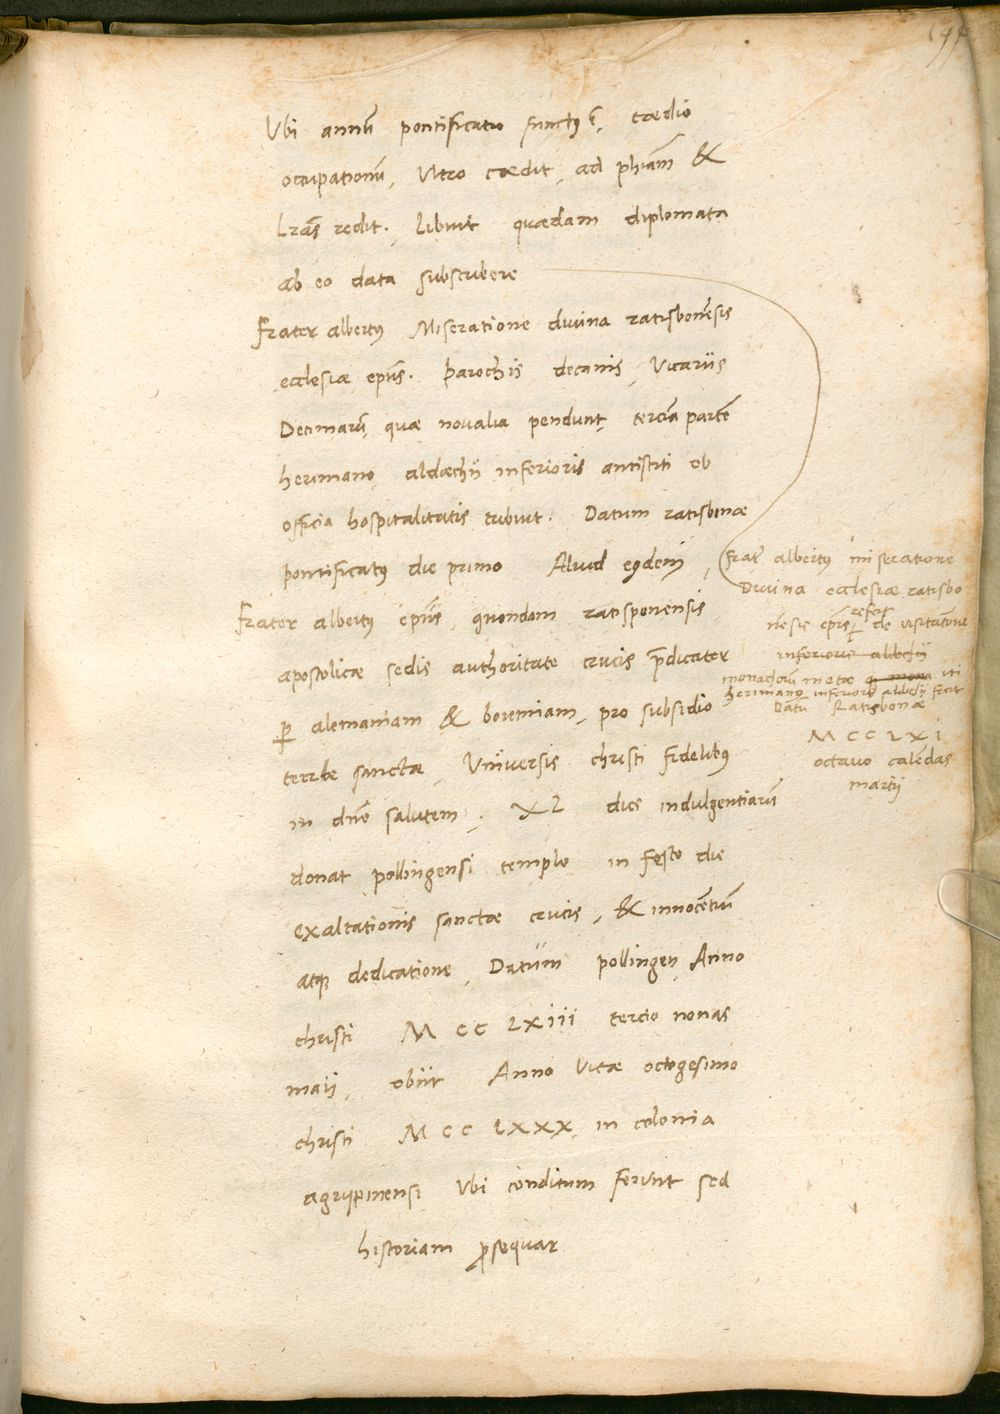 194
Vbi annū pontificatu functꝰ ē, tædio
occupationū, Vltro cædit, ad phiam̄ &
Lrās redit. Libuit quædam diplomata
ab eo data subscribere
Frater albertꝰ Miseratione diuina ratisbonēsis
ecclesiæ ep̄us. Parochis decanis, Vicariis
Decimarū quæ noualia pendunt, terciā partē
herimano aldæchii inferioris antistiti ob
officia hospitalitatis tribuit. Datum ratisbonæ
pontificatꝰ die primo Aliud eꝰdem,
Frater albertꝰ ep̄us quondam ratisponensis
apostolicæ sedis authoritate crucis p̄dicator
ꝑ alemaniam & boiemiam, pro subsidio
terræ sanctæ, Vniuersis christi fidelibꝰ
in dn̄o salutem, XL dies indulgentiarū
donat pollingensi templo in festo die
exaltationis sanctæ crucis, & innocētiū
atqꝫ dedicatione, Datum pollingen Anno
christi M CC LXIII tercio nonas
maii, obiit Anno Vitæ octogesimo
christi M CC LXXX in colonia
agrippinensi Vbi conditum ferunt sed
historiam ꝓsequar
frat̄ albertꝰ miseratione
Diuina ecclesiæ ratisbo
nēsis ep̄us refert de visitatione
inferioris aldechii
monachoū metæ q mona vti
herimanꝰ inferioris aldechii fecit
Datū Ratisbonæ
M CC LXI
octauo calēdas
martij